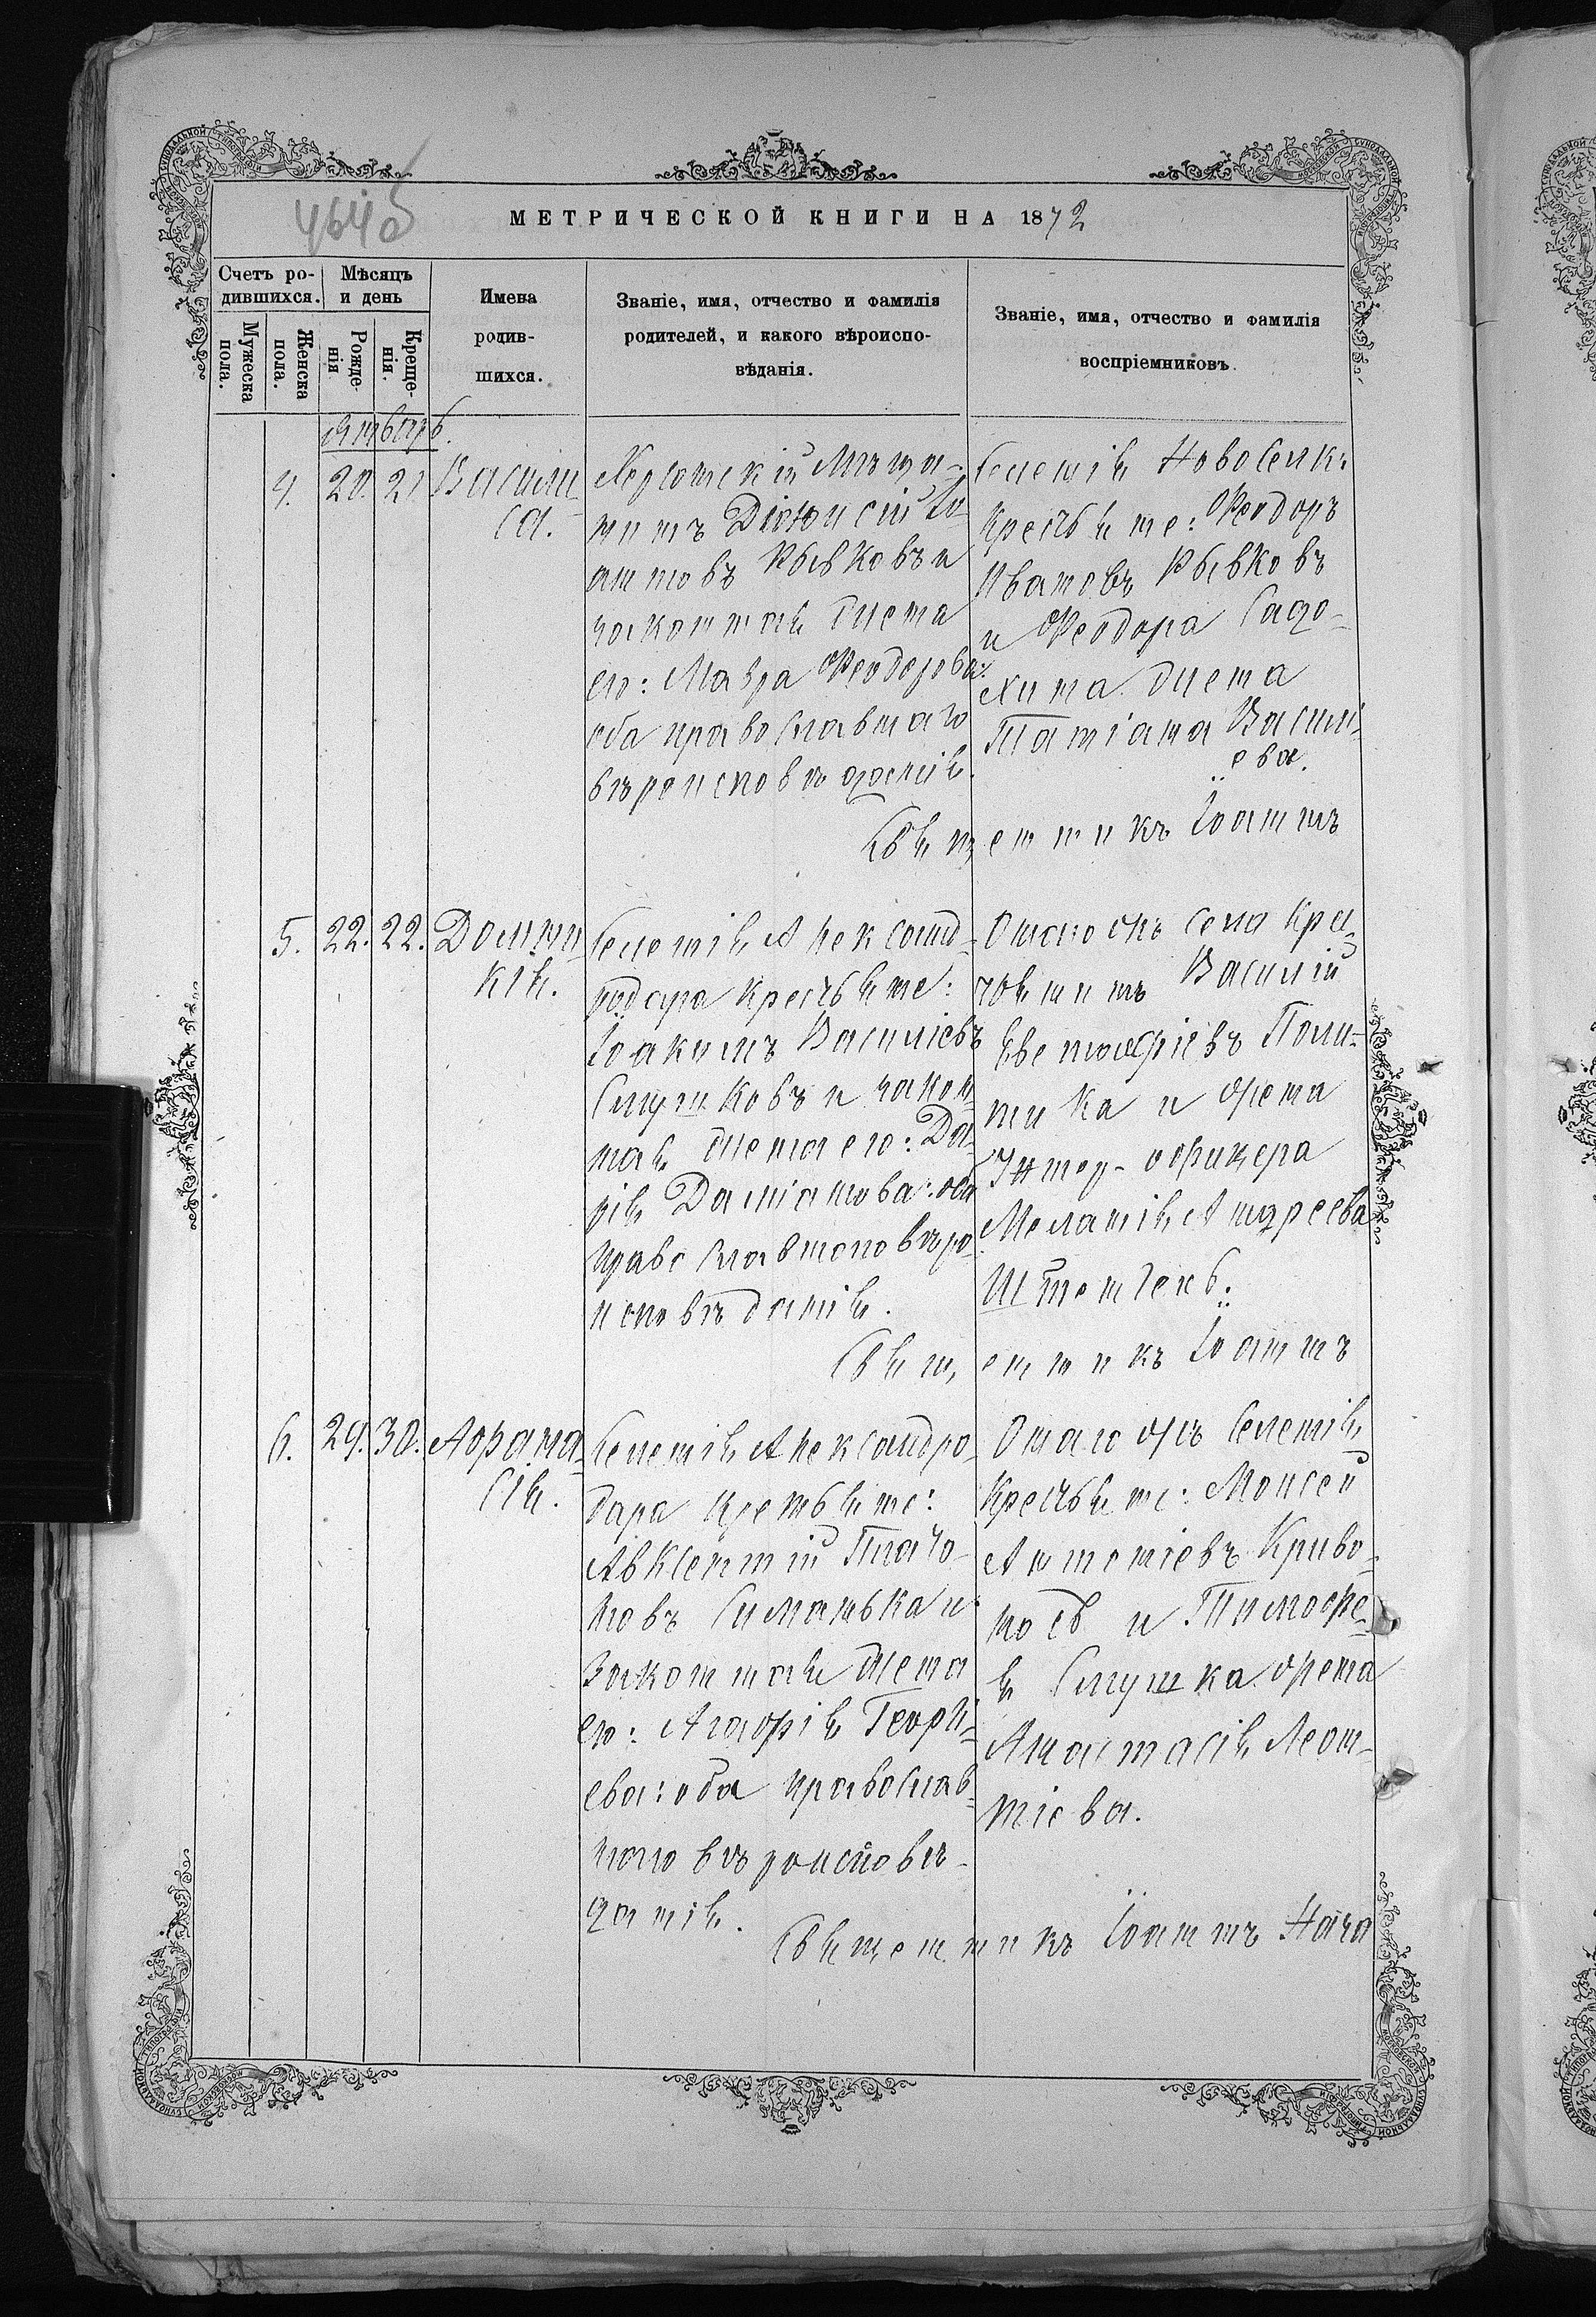 464об
МЕТРИЧЕСКОЙ КНИГИ НА 1872
Счетъ ро-
дившихся.
Мужеска
пола.
Женска
пола.
Мѣсяцъ
и день
Рожде-
нія
Креще-
нія.
Имена
родив-
шихся.
Званіе, имя, отчество и фамилія
родителей, и какого вѣроиспо-
вѣданія.
Званіе, имя, отчество и фамилія
воспріемниковъ.
Январь.
4. 20. 21 Васили-
са.
Херсонскій Мѣща-
нинъ Діонисій Іо-
анновъ Рывковъ и
законная жена
его: Мавра Феодорова:
оба православнаго
вѣроисповѣданія.
Селенія Новоселки
Крестьяне: Феодоръ
Ивановъ Рывковъ
и Феодора
жена
Татіана Василі-
ева.
Священникъ Іоаннъ
5. 22. 22. Домни-
кія.
Селенія Александ-
родара крестьяне:
Іоакимъ Василіевъ
Слушковъ и закон-
ная жена его: Да-
рія Даміанова: оба
православнаго вѣро-
исповѣданія.
Онаго жъ села кре-
стьянинъ Василій
Евстафіевъ
и жена
Унтер-офицера
Меланія Андреева
Священникъ Іоаннъ
6. 29. 30. Афана-
сія.
Селенія Александро-
дара крестьяне:
Авксентій Плато-
новъ Симанька и
Законная жена
его: Агафія Георгі-
ева: оба православ-
наго вѣроисповѣ-
данія.
Онаго жъ Селенія
Крестьяне: Моисей
Антоніевъ Криво-
носъ и Тимофе-
я Слушка жена
Анастасія Леон-
тіева.
Священникъ Іоаннъ